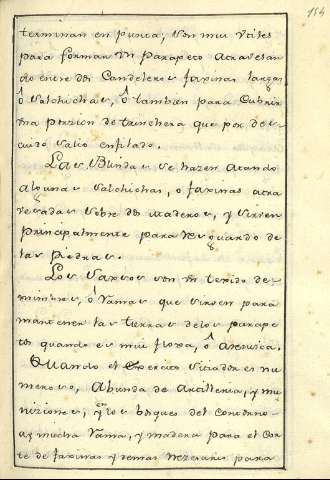 154
terminan en punta, son mui vtiles
para formar vn Parapeto atravesan
do entre dos Candeleros faxinas largas
ô Salchichas, ô tambien para Cubrir
vna porzion de trinchera que por des
cuido salio enfilada.
Las Blindas se hazen atando
algunas Salchichas, o faxinas atra
vesadas sobre dos maderos, y sirven
Principalmente para resguardo de
las Piedras.
Los Saxsos son vn texido de
mimbres, ô Ramas que sirven para
mantener las tierras delos parape
tos quando es mui floxa, ô arenisca.
Quando el Exercito sitiador es nu
meroso, Abunda de Artilleria, y mu
niziones, y en los bosques del Contorno
ay mucha Rama, y madera para el Cor
te de faxinas y demas nezesario para